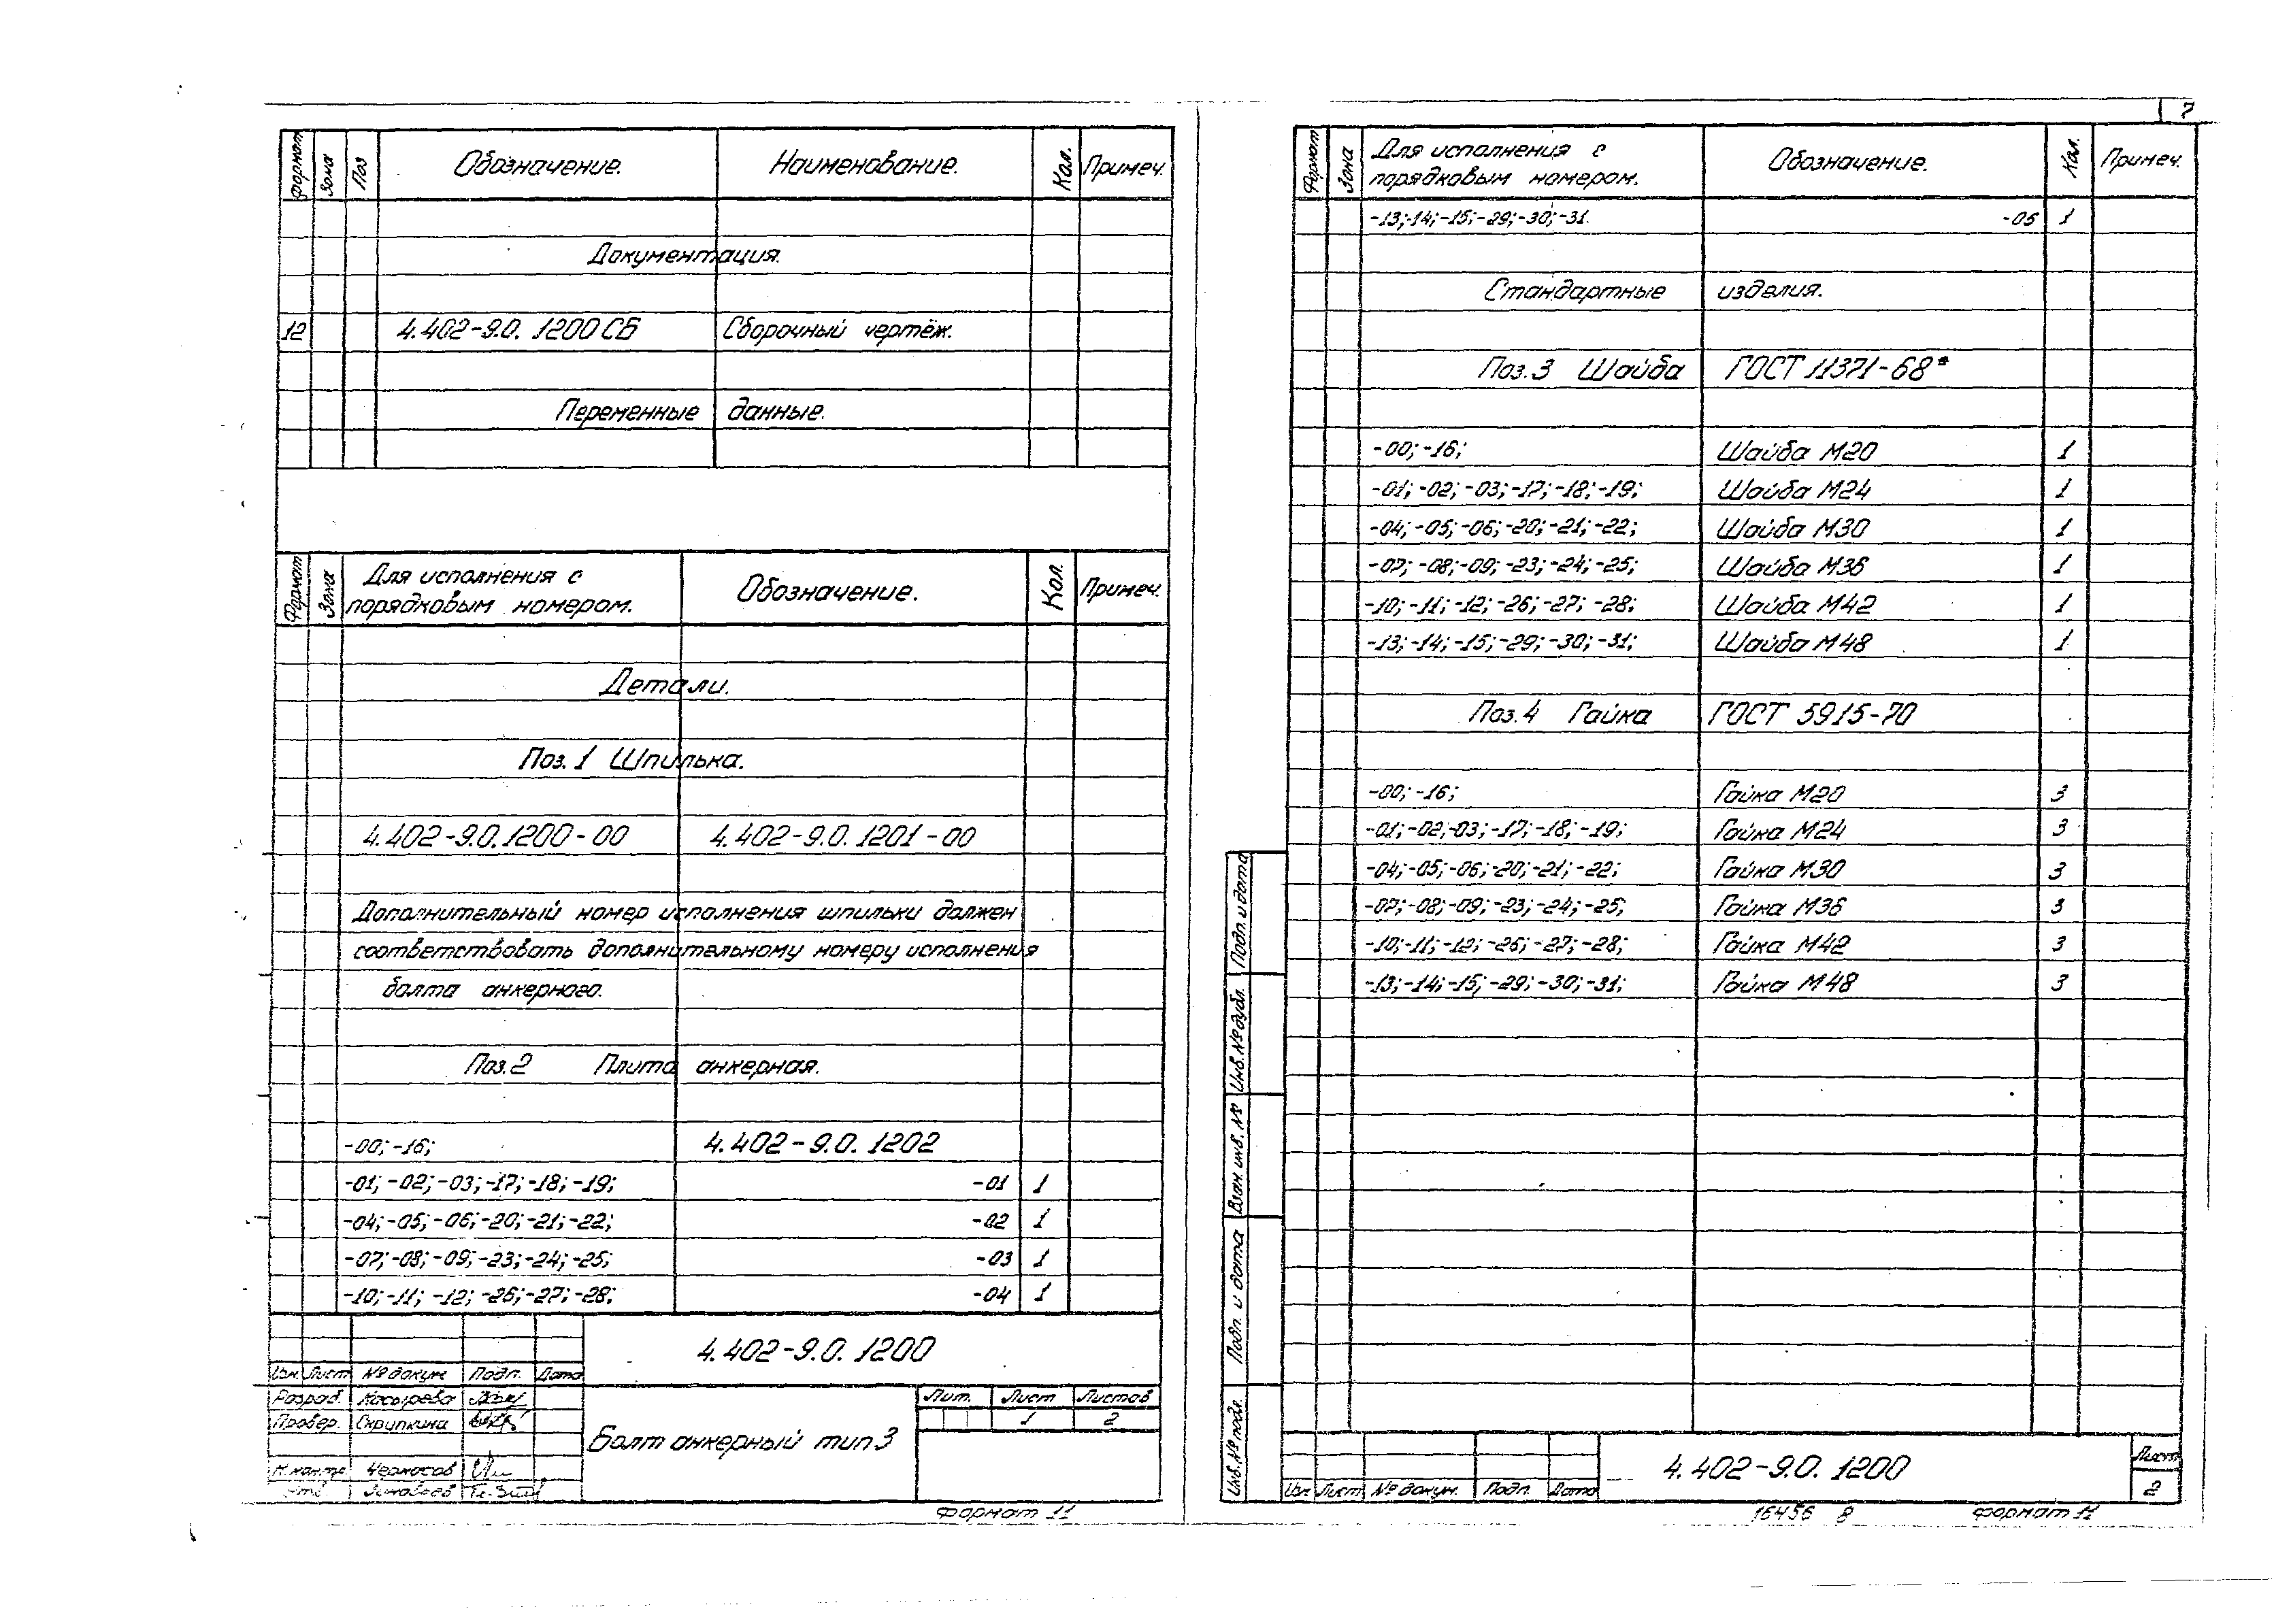 7
Формат Зона Поз Обозначение. Наименование. Кол. Примеч.
Документация.
12 4.402-9.0. 1200 СБ Сборочный чертёж.
Переменные данные.
Формат Зона Для исполнения с порядковым номером. Обозначение. Кол. Примеч.
Детали.
Поз. 1 Шпилька.
4.402-9.0.1200-00 4.402-9.0.1201-00
Дополнительный номер исполнения шпильки должен
соответствовать дополнительному номеру исполнения
болта анкерного.
Поз.2 Плита анкерная.
-00; -16; 4.402-9.0.1202
-01; -02; -03; -17; -18; -19; -01 1
-04; -05; -06; -20; -21; -22; -02 1
-07; -08; -09; -23; -24; -25; -03 1
-10; -11; -12; -26; -27; -28; -04 1
4.402-9.0. 1200
Изм. Лист № докум Подп. Дата
Разраб. Косырева
Провер. Скрипкина
Н.контр.
Утв.
Болт анкерный тип 3
Лит. Лист Листов
1 2
Формат 11
Формат Зона Для исполнения с порядковым номером. Обозначение. Кол. Примеч.
-13; -14; -15; -29; -30; -31. -05 1
Стандартные изделия.
Поз.3 Шайба ГОСТ 11371-68*
-00; -16; Шайба М20 1
-01; -02; -03; -17; -18; -19; Шайба М24 1
-04; -05; -06; -20; -21; -22; Шайба М30 1
-07; -08; -09; -23; -24; -25; Шайба М36 1
-10; -11; -12; -26; -27; -28; Шайба М42 1
-13; -14; -15; -29; -30; -31; Шайба М48 1
Поз.4 Гайка ГОСТ 5915-70
-00; -16; Гайка М20 3
-01; -02; -03; -17; -18; -19; Гайка М24 3
-04; -05; -06; -20; -21; -22; Гайка М30 3
-07; -08; -09; -23; -24; -25; Гайка М36 3
-10; -11; -12; -26; -27; -28; Гайка М42 3
-13; -14; -15; -29; -30; -31; Гайка М48 3
Подп. и дата
Инв. № дубл.
Взам. инв. №
Подп. и дата
Инв. № подл.
Изм Лист № докум. Подп. Дата
4.402-9.0. 1200
Лист
2
16456 8 Формат 11